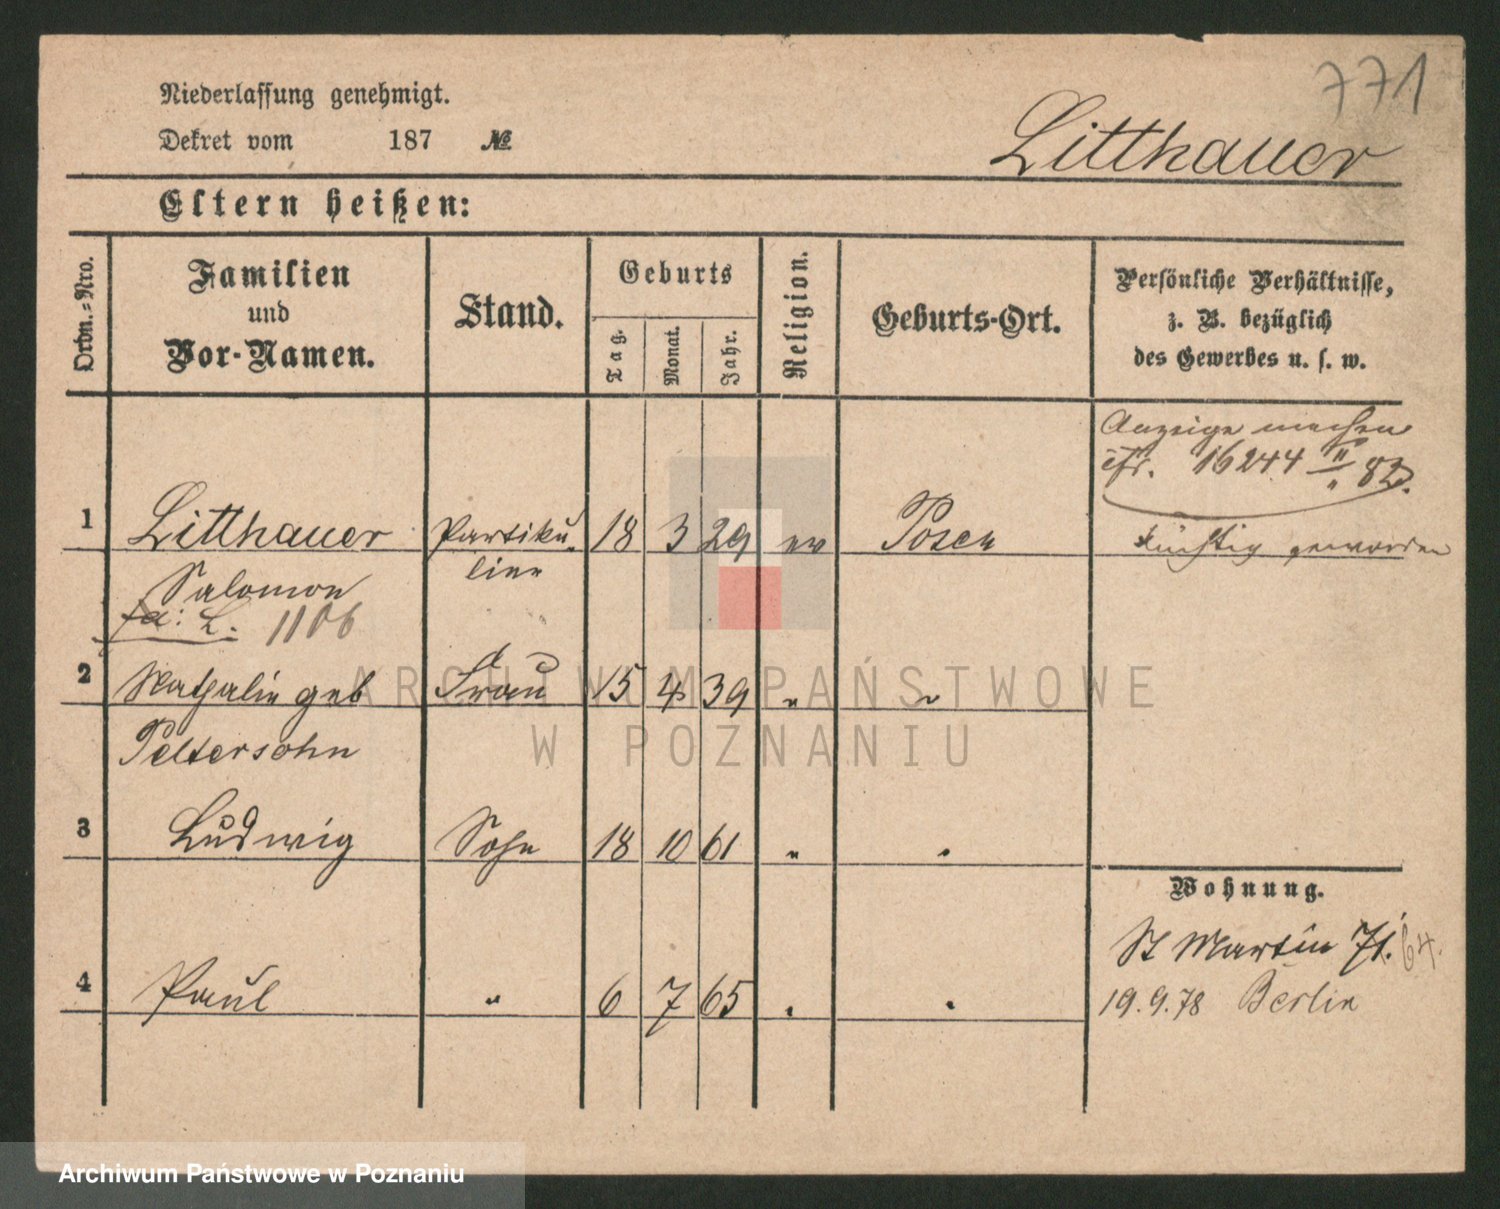 771
Niederlassung genehmigt.
Dekret vom 187 №
Litthauer
Eltern heißen:
Ordn.-Nro.
Familien und Vor-Namen.
Stand.
Geburts
Tag. Monat. Jahr.
Religion.
Geburts-Ort.
Persönliche Verhältnisse,
z. B. bezüglich
des Gewerbes u. s. w.
Anzeige machen
cfr. 16244 II/" 82.
1 Litthauer Partiku- 18 3 29 Posen flüchtig geworden
Salomon lier
fa: L. 1106
2 Nathalie geb Frau 15 4 39 " "
Peltersohn
3 Ludwig Sohn 18 10 61 " "
Wohnung.
St Martin 71. 64.
4 Paul " 6 7 65 " "
19.9.78 Berlin
ARCHIWUM PAŃSTWOWE
W POZNANIU
Archiwum Państwowe w Poznaniu